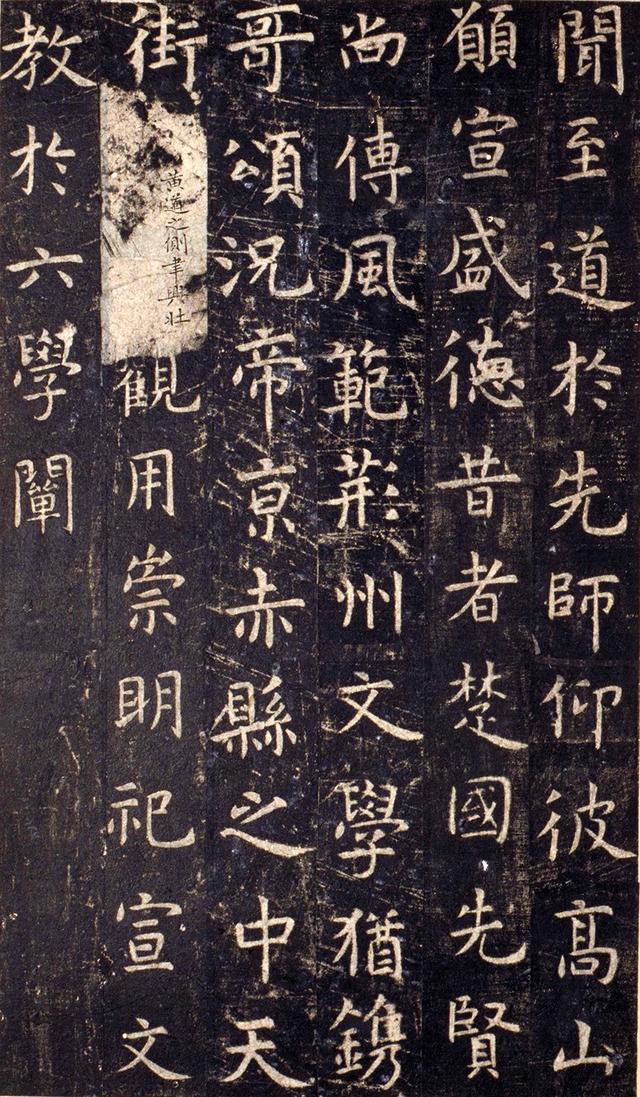 聞至道於先師仰彼髙山
願宣盛德昔者楚國先賢
尚傳風範荊州文學猶鐫
哥頌況帝京赤縣之中天
街黃道之側聿興壯觀用崇明祀宣文
教於六學闡